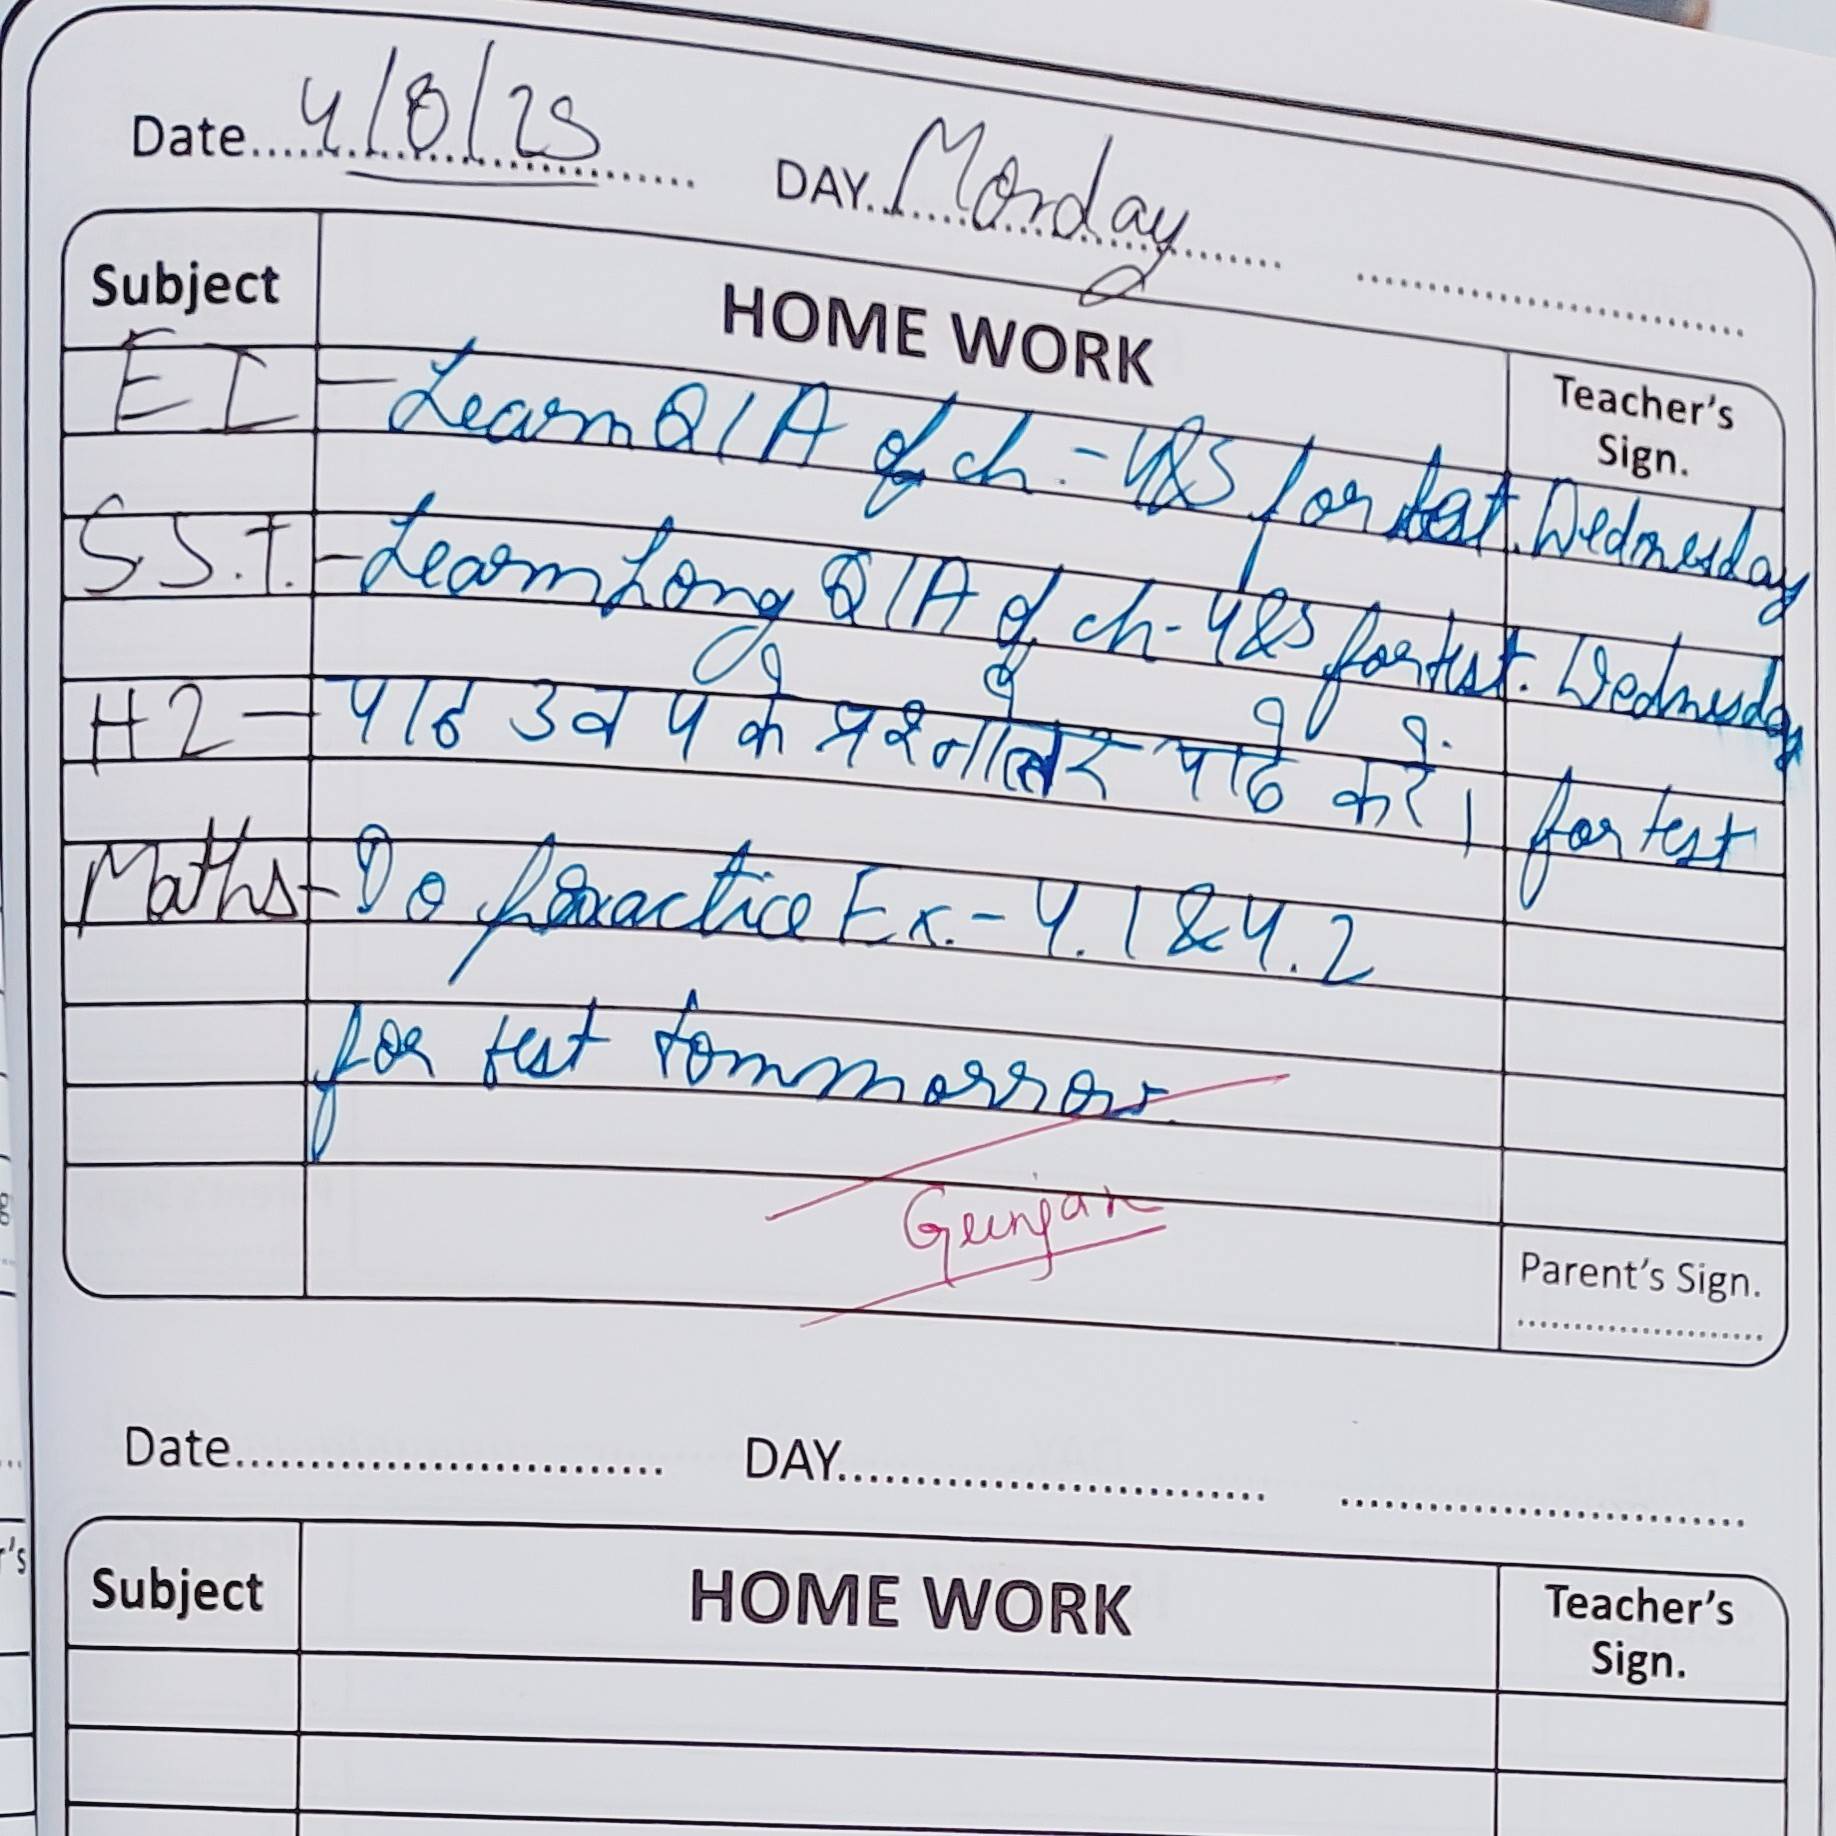 Date 4/8/25 DAY Monday
Subject HOME WORK Teacher's Sign.
E I - Learn Q/A of ch.-4&5 for test. Wednesday
S S.T. - Learn Long Q/A of ch-4&5 for test. Wednesday
H 2 - पाठ 3 व 4 के प्रश्नोत्तर याद करें। for test
Maths - Do practice Ex.- 4.1 & 4.2
for test tommorrow.
Gunjan
Parent's Sign.
Date DAY
Subject HOME WORK Teacher's Sign.